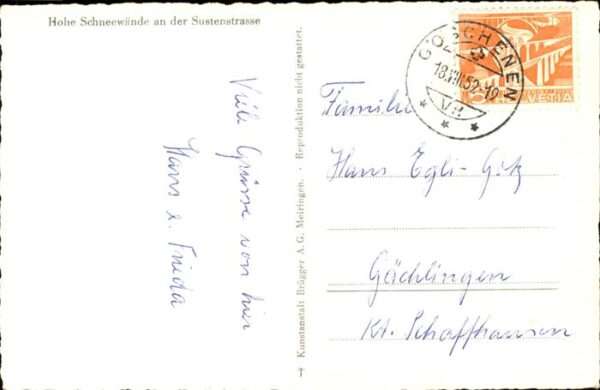 Hohe Schneewände an der Sustenstrasse
Viele Grüsse von hier
Hans & Frieda
Kunstanstalt Brügger A. G. Meiringen. · Reproduktion nicht gestattet.
GÖSCHENEN
18.VIII.52-19
HELVETIA
Familie
Hans Egli-Götz
Gächlingen
Kt. Schaffhausen